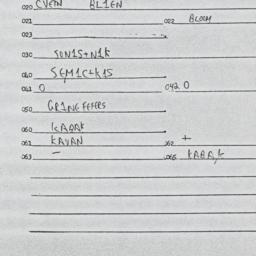 020 CVETN BLIEN
021 022 BLOOM
023
030 SUNIS+NIK
040 SEMICHKIS
041 0 042 0
050 GRINEFEFERS
060 KAQAK
061 KAVAN 062 +
063 — 065 KABA,K